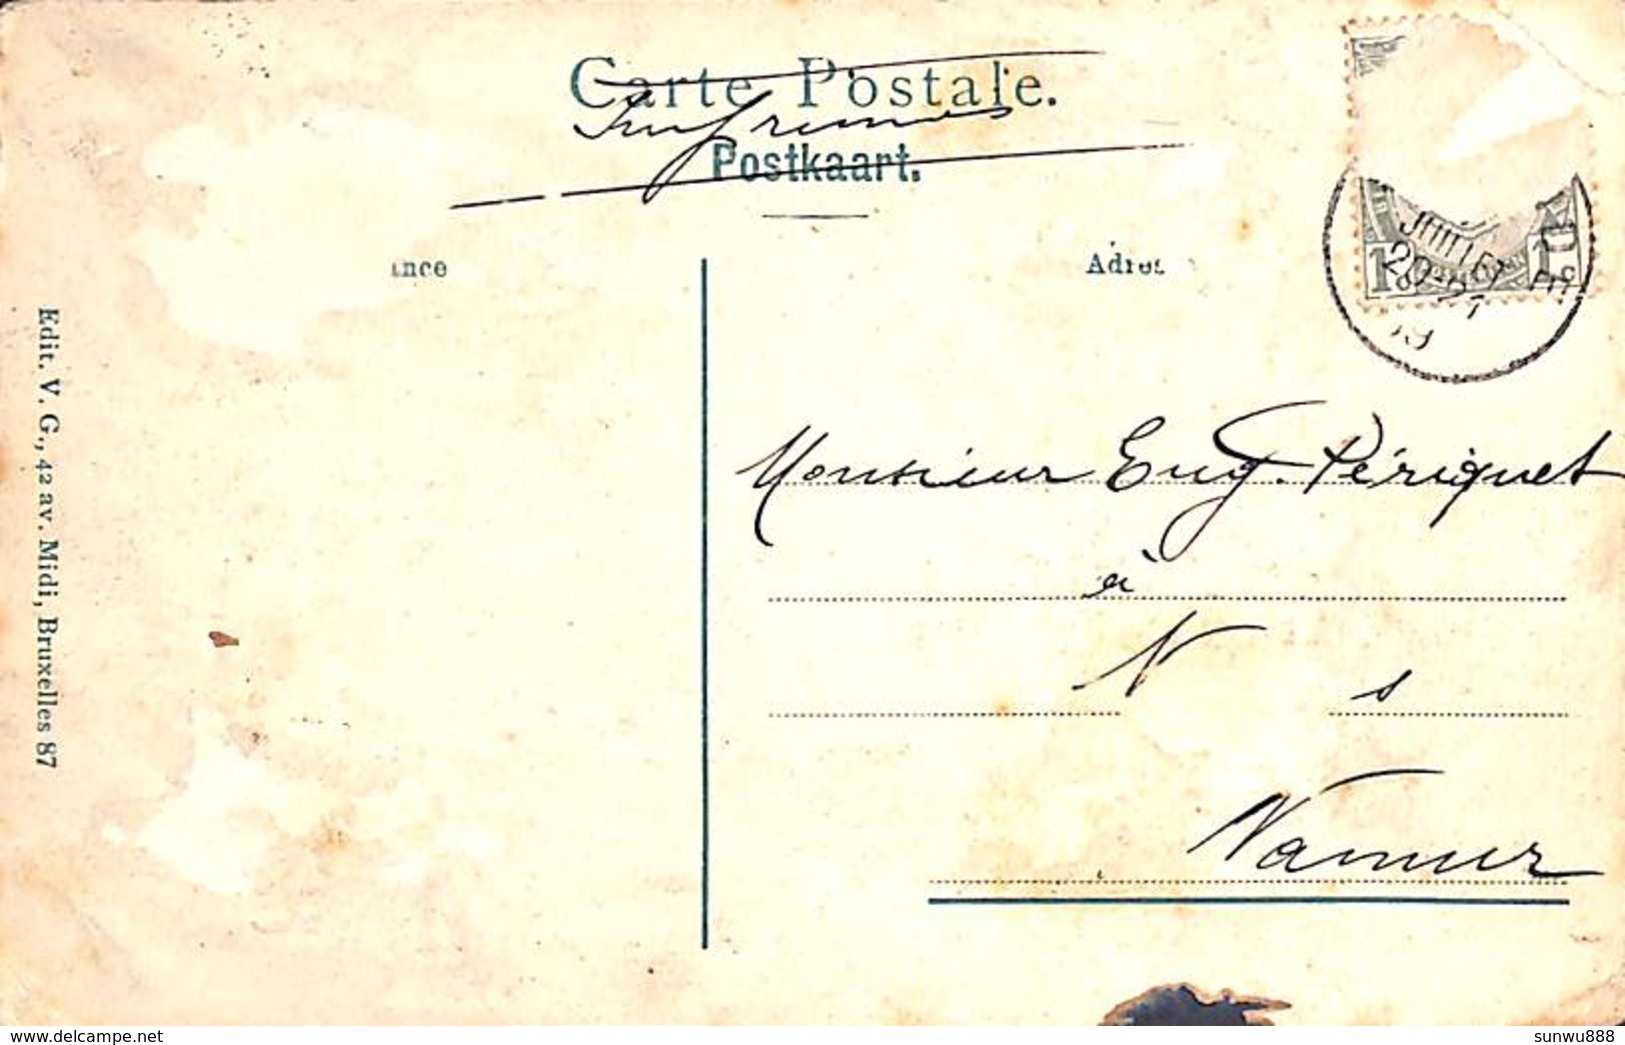 Carte Postale.
Imprimés
Postkaart.
ance
Adres
1 1 c
20-21
19
Monsieur Eug. Périquet
à
N s
Namur
Edit. V. G., 42 av. Midi, Bruxelles 87
delcampe.net
sunwu888